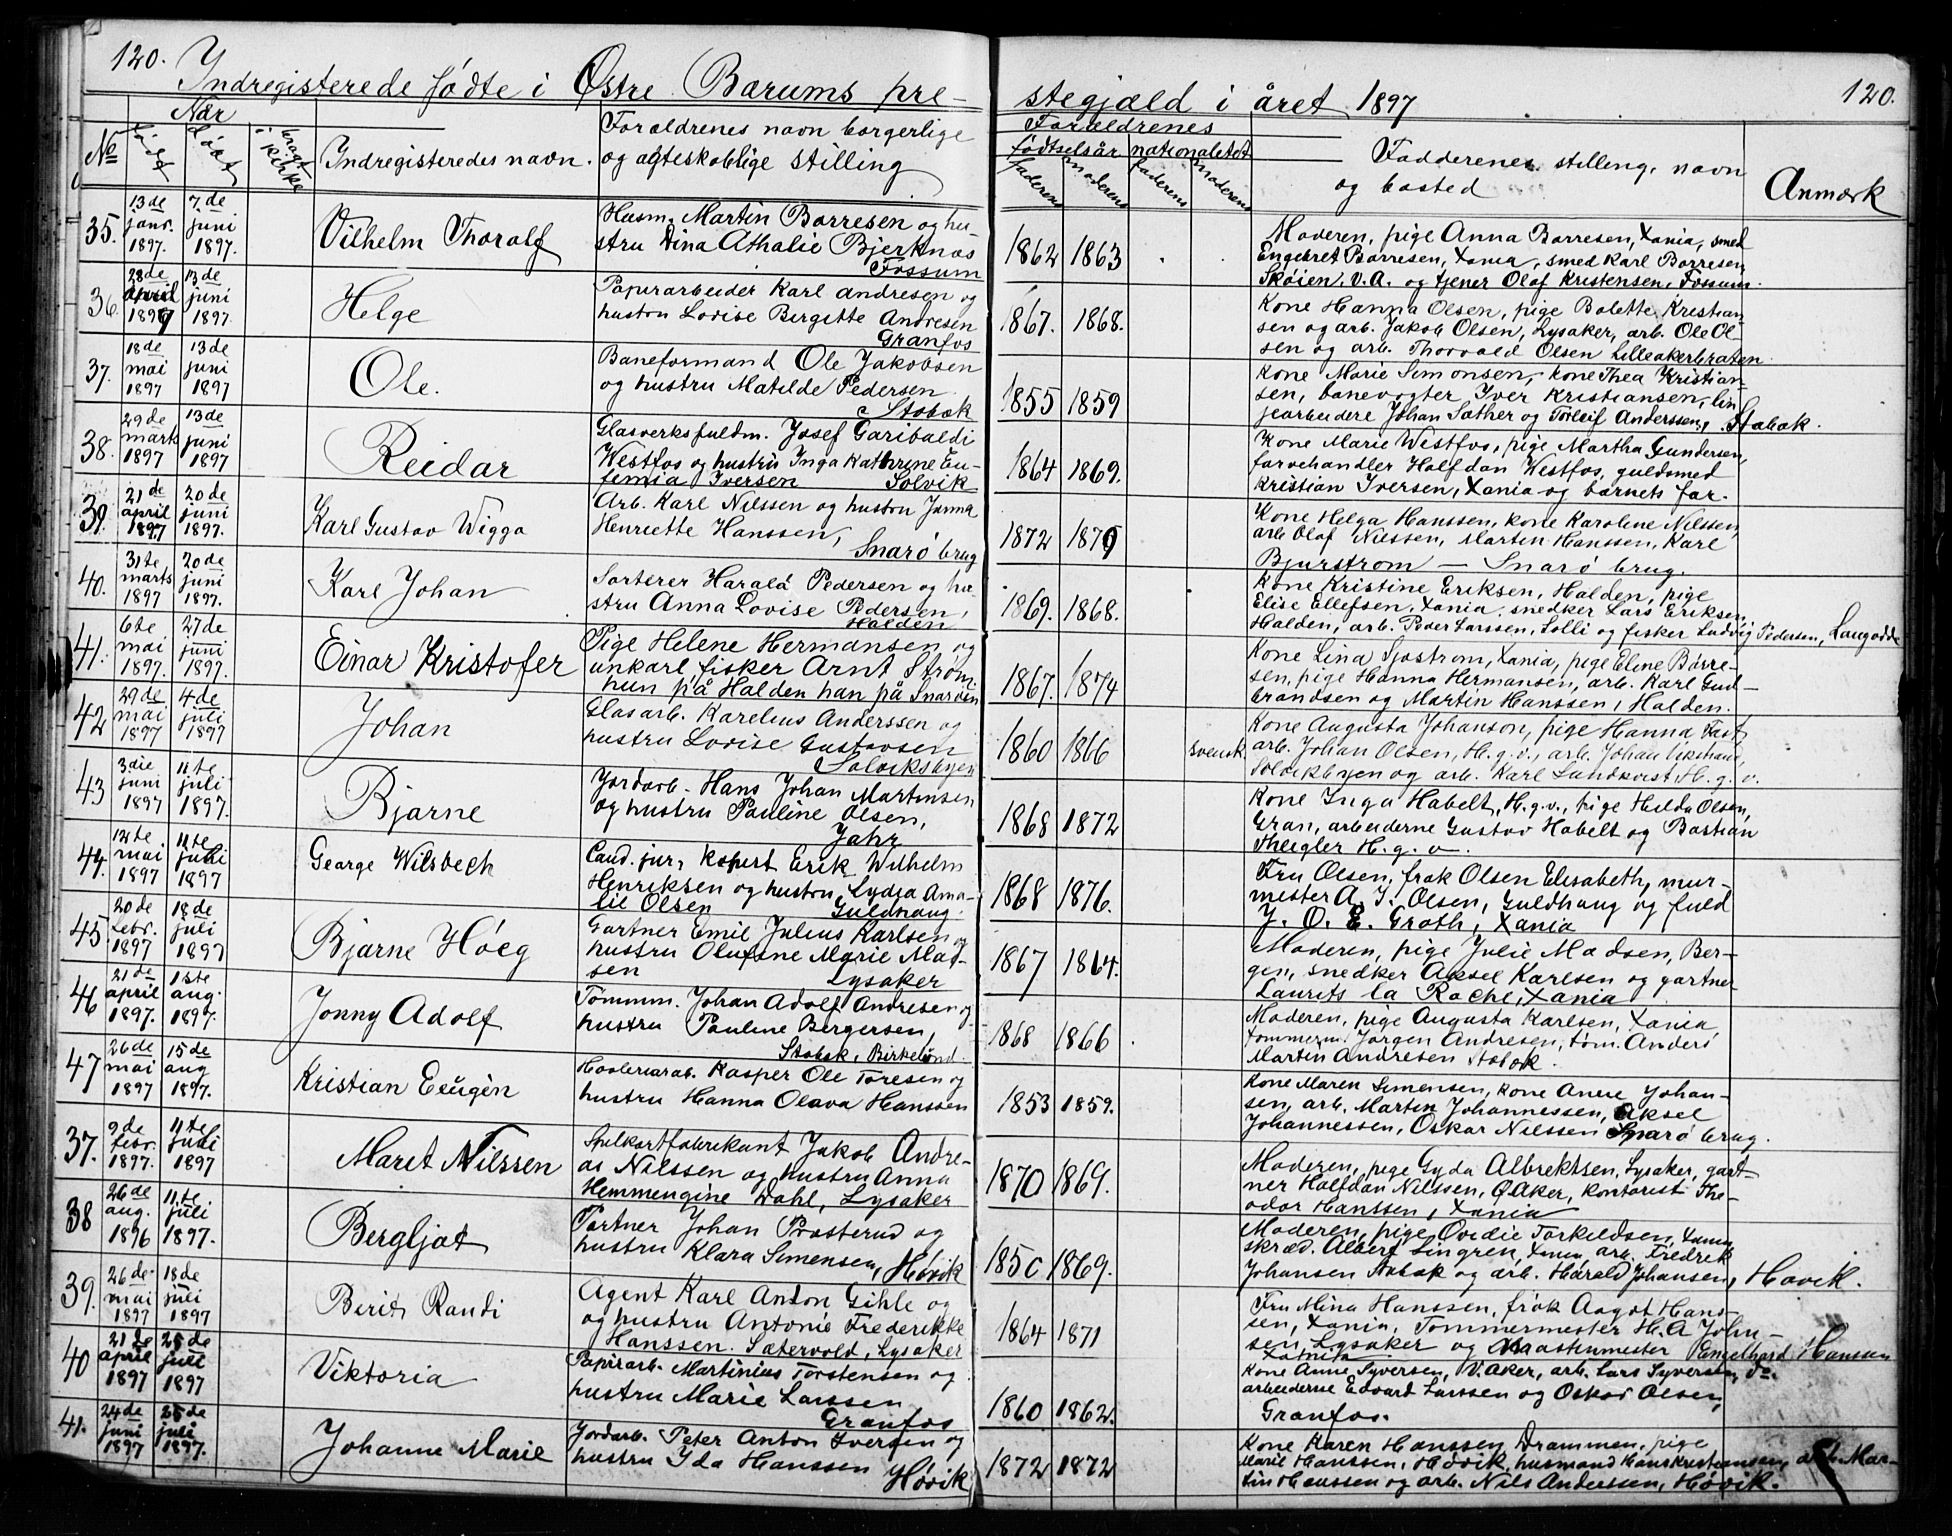 120.
Indregisterede fødte i Østre Bærums pre-
stegjæld i året 1897
120.
Nær
No
født
døbt
bragt i kirke
Indregisteredes navn.
Forældrenes navn borgerlige
og ægteskablige stilling
Forældrenes
fødtselsår nationalitet
faderens moderens faderens moderens
Faddernes stilling, navn
og bosted
Anmærk
35. 13de janr. 1897. 7de juni 1897.
Vilhelm Thoralf
Husm. Martin Børresen og hu-
stru Dina Athalie Bjerknæs
Fossum
1862 1863
Moderen, pige Anna Børresen, Xania, smed
Engebret Børresen, Xania, smed Karl Børresen
Skøien, V.A. og tjener Olaf Kristensen, Fossum.
36. 28de april 1897 13de juni 1897.
Helge
Papirarbeider Karl Andresen og
hustru Lovise Bergitte Andresen
Granfos
1867. 1868.
Kone Hanna Olsen, pige Bolette Kristian-
sen og arb. Jakob Olsen, Lysaker, arb. Ole Ol-
sen og arb. Thorvald Olsen Lilleakerbraten.
37. 18de mai 1897 13de juni 1897
Ole.
Baneformand Ole Jakobsen
og hustru Matilde Pedersen
Stabæk
1855 1859
Kone Marie Simonsen, kone Thea Kristian-
sen, banevogter Iver Kristiansen, lin-
jearbeidere Johan Sæther og Torleif Anderssen, Stabæk.
38. 29de marts 1897 13de juni 1897
Reidar
Glasverksfuldm. Josef Garibaldi
Westfos og hustru Inga Kathrine Eu-
femia Iversen Solvik
1864 1869.
Kone Marie Westfos, pige Martha Gundersen,
farvehandler Halfdan Westfos, guldsmed
Kristian Iversen, Xania og barnets far.
39. 21de april 1897 20de juni 1897.
Karl Gustav Wigga
Arb. Karl Nilssen og hustru Janna
Henriette Hanssen,
Snarø brug
1872 1879
Kone Helga Hanssen, kone Karoline Nilssen,
arb Olaf Nilssen, Martin Hanssen, Karl
Bjurstrøm — Snarø brug.
40. 31te marts 1897 20de juni 1897.
Karl Johan
Sorterer Harald Pedersen og hu-
stru Anna Lovise Pedersen,
Halden
1869. 1868.
Kone Kristine Eriksen, Halden, pige
Elise Ellefsen, Xania, snedker Lars Eriksen,
Halden, arb. Peder Larssen, Lolli og fisker Ludvig Pedersen, Langodde
41. 6te mai 1897. 27de juni 1897.
Einar Kristofer
Pige Helene Hermansen og
unkarl fisker Arnt Strøm.
hun på Halden han på Snarøen
1867. 1874
Kone Lina Sjøstrøm, Xania, pige Eline Børre-
sen, pige Hanna Hermansen, arb. Karl Gud-
brandsen og Martin Hanssen, Halden.
42 29de mai 1897 4de juli 1897
Johan
Glasarb. Karelius Anderssen og
hustru Lovise Gustavsen
Solviksbyen
1860 1866
svensk
Kone Augusta Johanson, pige Hanna
arb. Johan Olsen, H.g.v., arb. Johan
Solvikbyen og arb. Karl Lundkvist H.g.v.
43 3die juni 1897 11te juli 1897.
Bjarne
Jordarb. Hans Johan Martinsen
og hustru Pauline Olsen,
Jahr
1868 1872
Kone Inga Habelt, H.g.v., pige Hilda Olsen,
Gran, arbeiderne Gustav Habelt og Bastian
Theigler H.g.v.
44. 12te mai 1897 11te juli 1897
George Wilsbech
Cand. jur, kopist Erik Wilhelm
Henriksen og hustru Lydia Ama-
lie Olsen Guldhaug.
1868 1876.
Fru Olsen, frøk Olsen Elisabeth, mur-
mester A. J. Olsen, Guldhaug og fuld
J. O. E. Groth, Xania
45. 20de febr. 1897 18de juli 1897
Bjarne Høeg
Gartner Emil Julius Karlsen og
hustru Olufine Marie Mad-
sen Lysaker
1867 1864.
Moderen, pige Julie Madsen, Ber-
gen, snedker Aksel Karlsen og gartner
Laurits la Roche, Xania
46 21de april 1897. 1ste aug. 1897.
Jonny Adolf
Tømmm. Johan Adolf Andresen og
hustru Pauline Bergersen,
Stabæk, Birkelund.
1868 1866
Moderen, pige Augusta Karlsen, Xania
tømmerm. Jørgen Andresen, tøm. Anders
Martin Andresen Stabæk.
47 26de mai 1897 15de aug 1897.
Kristian Eeugén
Høvleriarb. Kasper Ole Toresen og
hustru Hanna Olava Hanssen
1853 1859.
Kone Maren Simensen, kone Anne Johan-
sen, arb. Martin Johannessen, Aksel
Johannessen, Oskar Nilssen Snarø brug.
37. 9de febr. 1897. 11te juli 1897
Maret Nilssen
Spilkortfabrikant Jakob Andre-
as Nilssen og hustru Anna
Hemmengine Dahl, Lysaker
1870 1869.
Moderen, pige Gyda Albrektsen, Lysaker, gart-
ner Halfdan Nilssen, Ø Aker, kontorist The-
odor Hanssen, Xania
38 26de aug. 1896 11te juli 1897.
Bergljot
Portner Johan Prosterud og
hustru Klara Simensen, Høvik
1850 1869.
Moderen, pige Ovidie Torkildsen, Xania
skræd. Albert Lingren, Xania, arb. Fredrik
Johansen Stabæk og arb. Harald Johansen, Høvik.
39. 26de mai 1897 18de juli 1897
Berit Randi
Agent Karl Anton Gihle og
og hustru Antonie Frederikke
Hanssen. Sætervold, Lysaker
1864 1871
Fru Mina Hanssen, frøk Aagot Hans-
sen, Xania, Tømmermester H. A John-
sen Lysaker og Maskinmester Engelhard Hansen
Xania
40 21de april 1897 25de juli 1897
Viktoria
Papirarb. Martinius Torstensen og
hustru Marie Larssen
Granfos
1860 1862.
Kone Anne Syversen, V. Aker, arb. Lars Syversen, do.
arbeiderne Edvard Larssen og Oskar Olsen,
Granfos.
41. 24de juni 1897 25de juli 1897.
Johanne Marie
Jordarb. Peter Anton Iversen og
hustru Ida Hanssen
Høvik
1872 1872
Kone Karen Hanssen Drammen, pige
Marie Hanssen, Høvik, husmand Hans Kristiansen, arb. Mar-
tin Hanssen og arb. Nils Anderssen, Høvik.